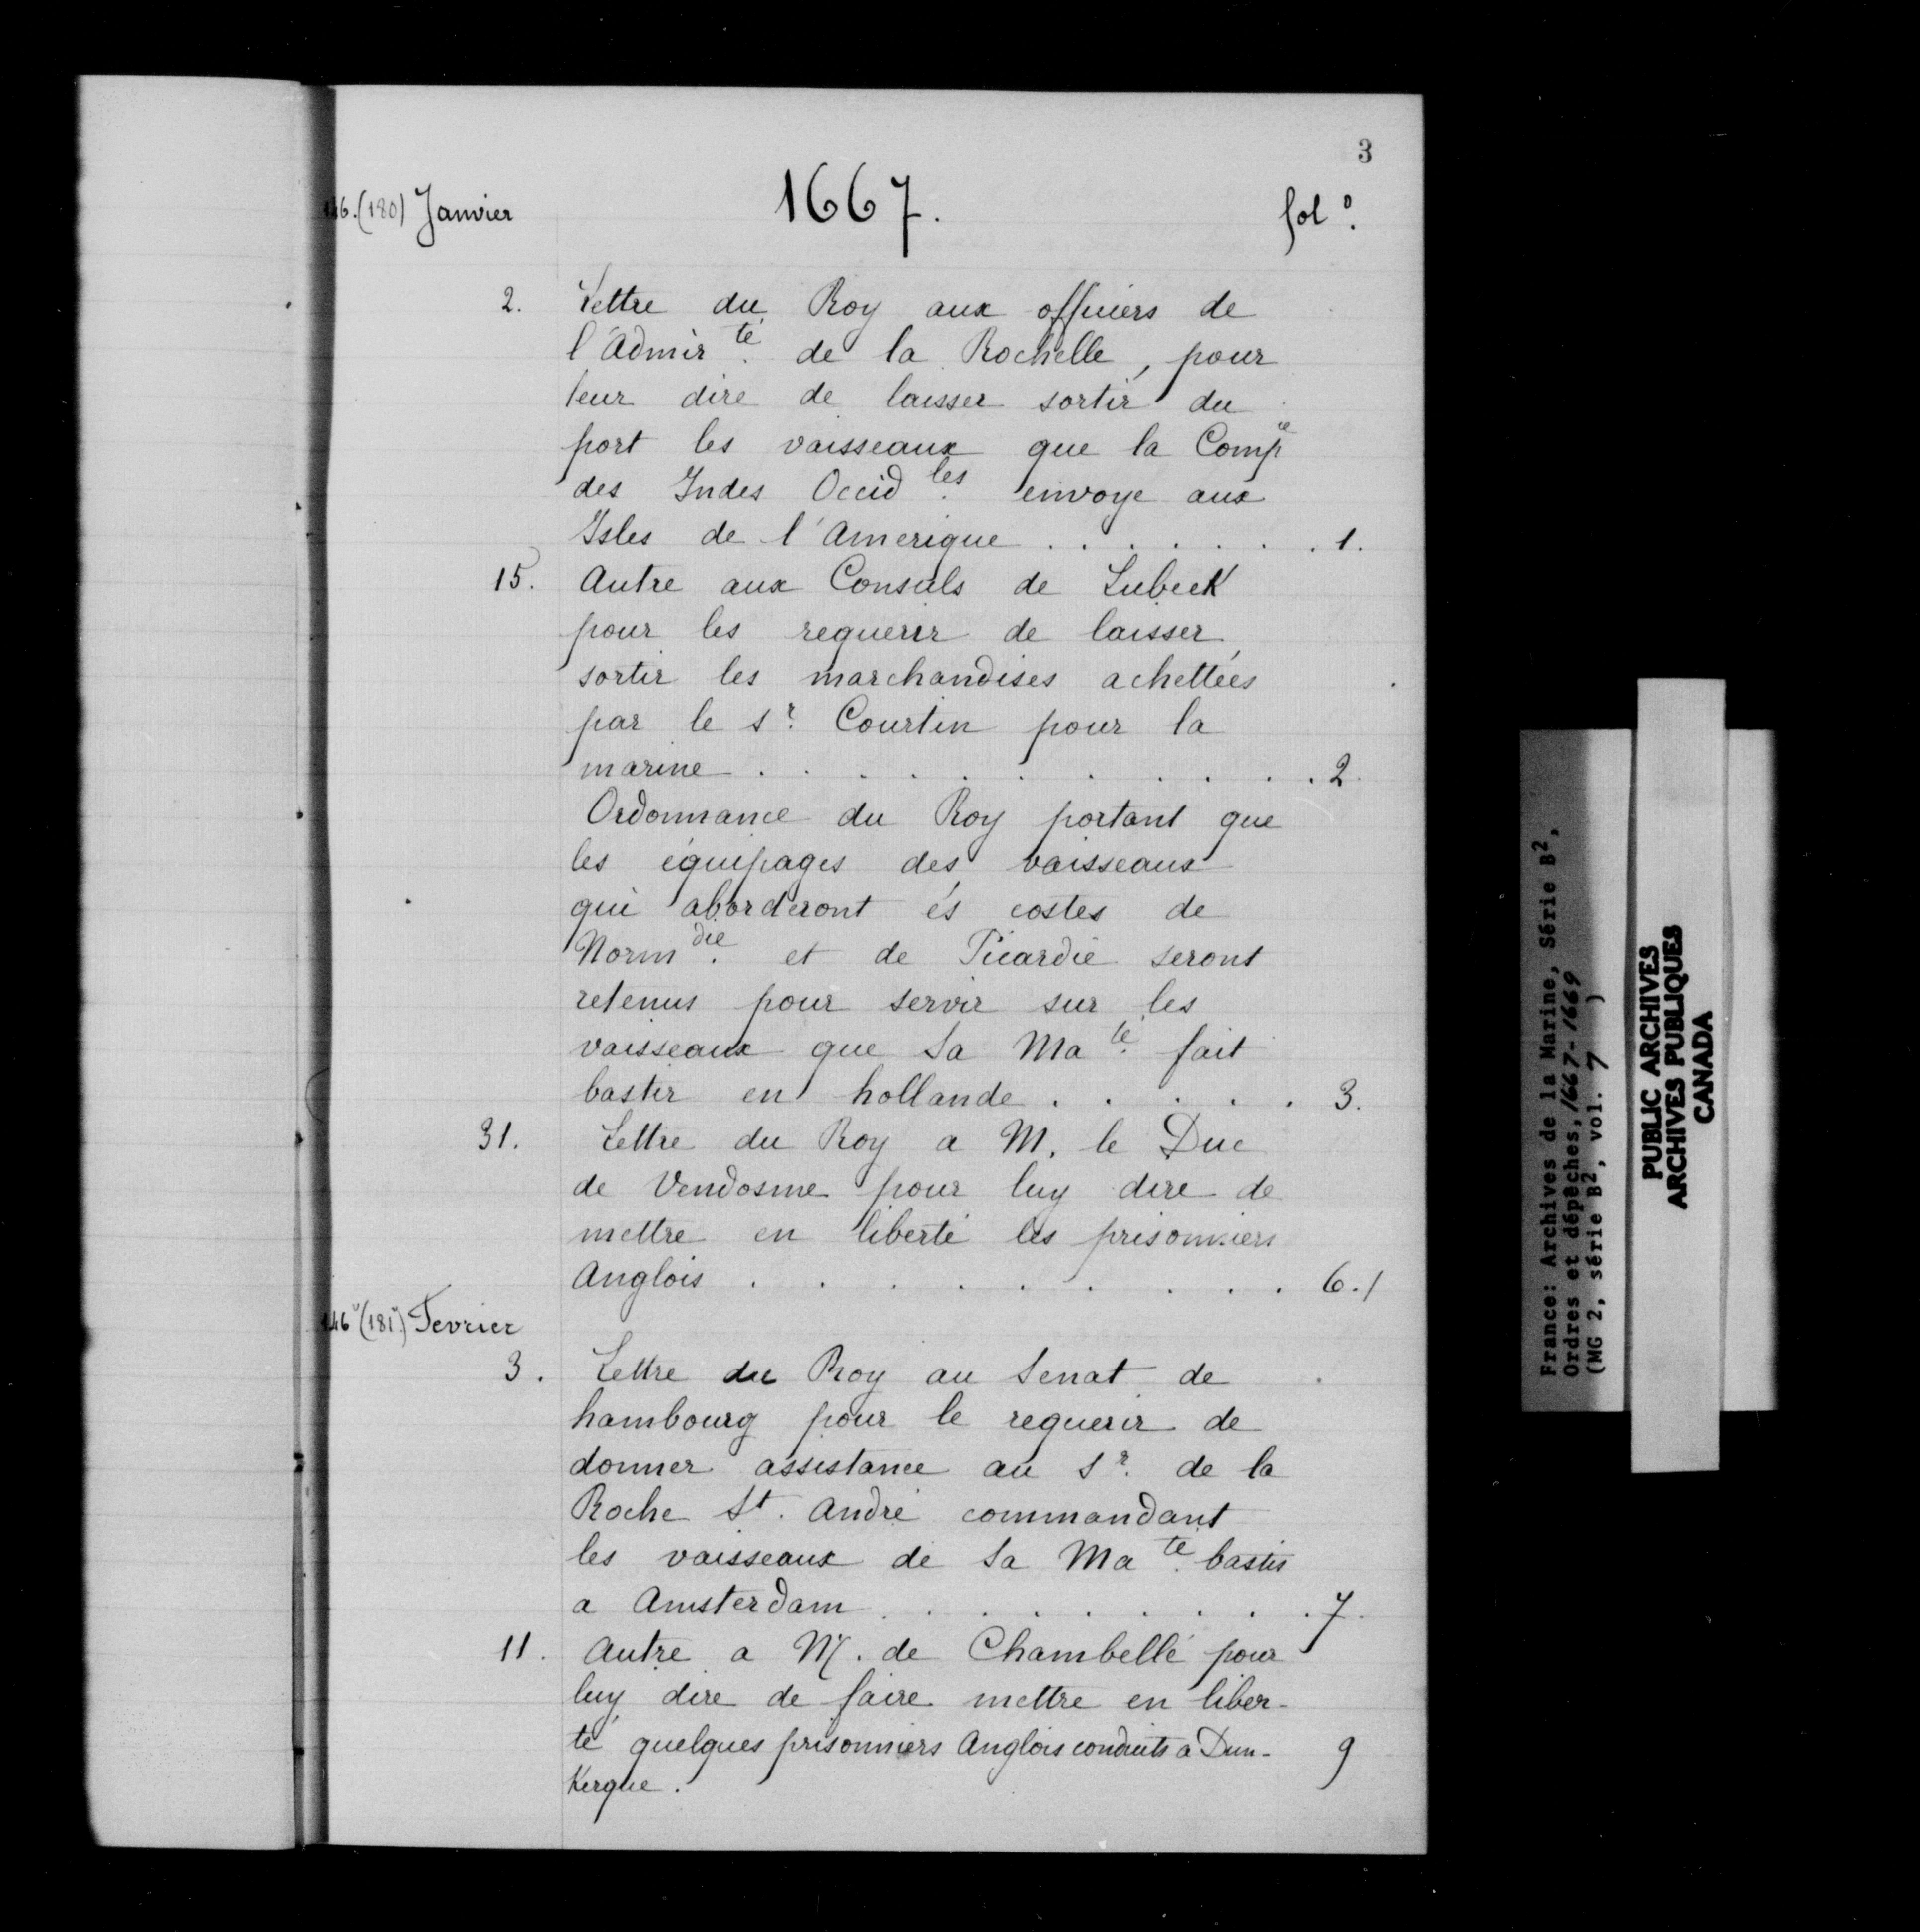 3
1667.
146.(180) Janvier
fol°.
2. Lettre du Roy aux officiers de
l'Admir.té de la Rochelle, pour
leur dire de laisser sortir du
port les vaisseaux que la Comp.ie
des Indes Occid.les envoye aux
Isles de l'Amerique . . . . . . 1.
15. Autre aux Consuls de Lubeck
pour les requerir de laisser
sortir les marchandises achettées
par le sr. Courtin pour la
marine . . . . . . . . . . . 2.
Ordonnance du Roy portant que
les équipages des vaisseaux
qui aborderont és costes de
Norm.die et de Picardie seront
retenus pour servir sur les
vaisseaux que Sa Ma.té fait
bastir en hollande . . . . . 3.
31. Lettre du Roy a M. le Duc
de Vendosme pour luy dire de
mettre en liberté les prisonniers
Anglois . . . . . . . . . 6./
146v (181v) Fevrier
3. Lettre du Roy au Senat de
hambourg pour le requerir de
donner assistance au sr. de la
Roche St. André commandant
les vaisseaux de Sa Ma.té bastis
a Amsterdam . . . . . . . . 7.
11. Autre a M. de Chambellé pour
luy dire de faire mettre en liber-
té quelques prisonniers Anglois conduits a Dun- 9
Kerque.
France: Archives de la Marine, Série B2,
Ordres et dépêches, 1667-1669
(MG 2, série B2, vol. 7 )
PUBLIC ARCHIVES
ARCHIVES PUBLIQUES
CANADA